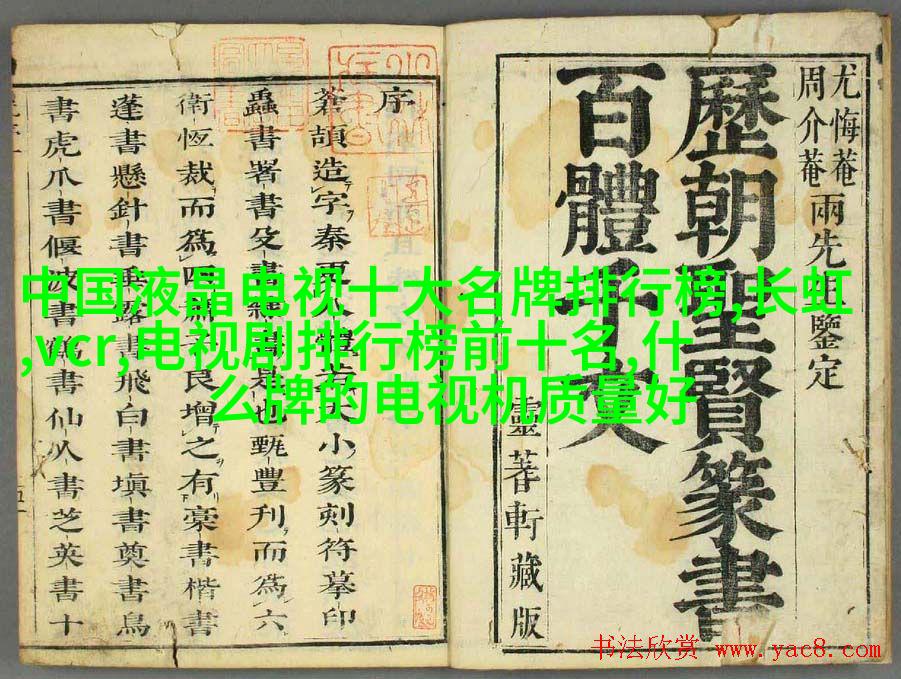 中国液晶电视十大名牌排行榜,长虹
,vcr,电视剧排行榜前十名,什
么牌的电视机质量好
尤悔菴
周介菴
兩先生鑒定
歷朝聖賢篆書
百體千文
靈蓍軒藏版
序
蒼頡造字秦小篆刻符摹印
蟲書署書殳書是也甄豐刋而爲六
衛恆裁而爲四良增之有藁書楷書
蓬書懸針書垂露書飛白書塡書奠書鳥
書虎爪書偃波書鶴書仙人書芝英書十
书法欣赏 www.yac8.com